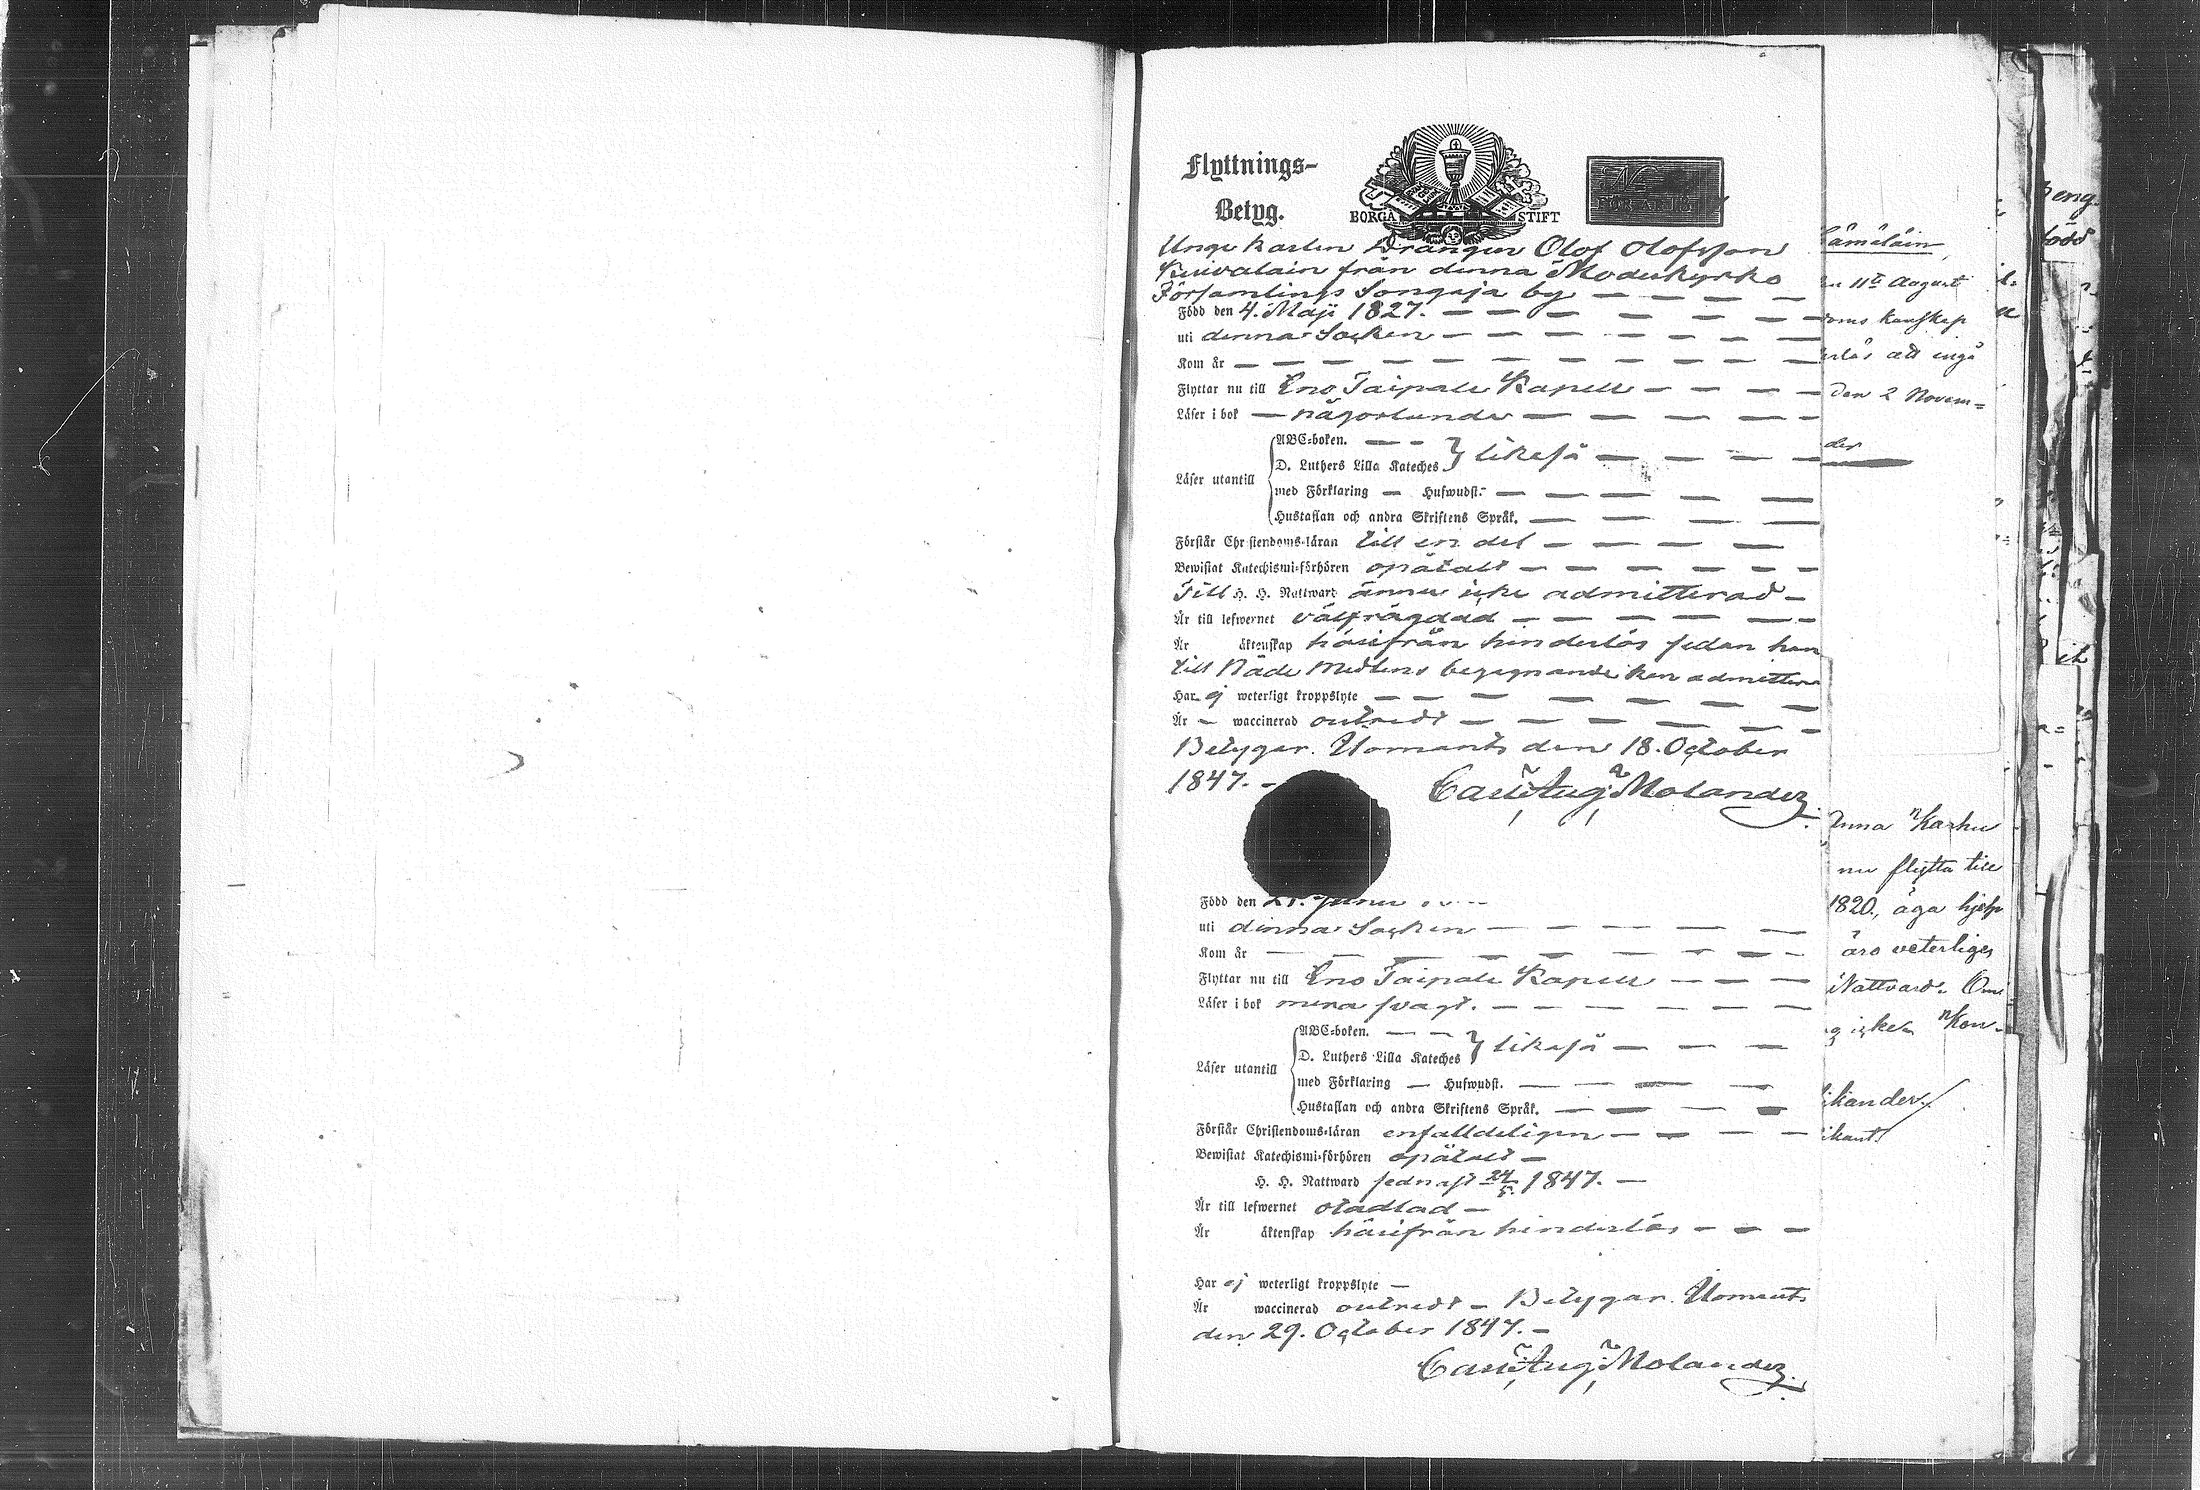 Flyttnings-
Betyg.
BORGÅ STIFT
Unge Karlen Drängen Olof Olofsson
Kuivalain från denna Moderkyrko
Församlings Songaja by
Född den 4. Maji 1827.
uti denna Socken
Kom år
Flyttar nu till Eno Taipale Kapell
Läser i bok någorlunda
Läser utantill
ABC-boken.
D. Luthers Lilla Kateches } likaså
med Förklaring — Hufwudst.
Hustaflan och andra Skriftens Språk.
Förstår Christendoms-läran till en del
Bewistat Katechismi-förhören opåtalt
Till H. H. Nattward ännu icke admitterad
Är till lefwernet välfrägdad
Är äktenskap härifrån hinderlös sedan han
till Nåde Medlens begagnande kan admittera
Har ej weterligt kroppslyte
Är — waccinerad outredt
Betygar. Ilomants den 18. October
1847.
Carl Aug. Molander
Född den 21. Junii
uti denna Socken
Kom år
Flyttar nu till Eno Taipale Kapell
Läser i bok mera svagt.
Läser utantill
ABC-boken.
D. Luthers Lilla Kateches } likaså
med Förklaring — Hufwudst.
Hustaflan och andra Skriftens Språk.
Förstår Christendoms-läran enfalldeligen
Bewistat Katechismi-förhören opåtalt
H. H. Nattward sednast 24/5 1847.
Är till lefwernet otadlad
Är äktenskap härifrån hinderlös
Har ej weterligt kroppslyte
Är waccinerad outredt — Betygar. Ilomants
den 29. October 1847.
Carl Aug. Molander
ämäläin
11te August
doms kunskap
att ingå
den 2 Novem=
der
Anna Karhu
nu flytta till
1820, äga hjelp
äro veterliges
Nattvard. Om
icke Kon-
ikander
ikant